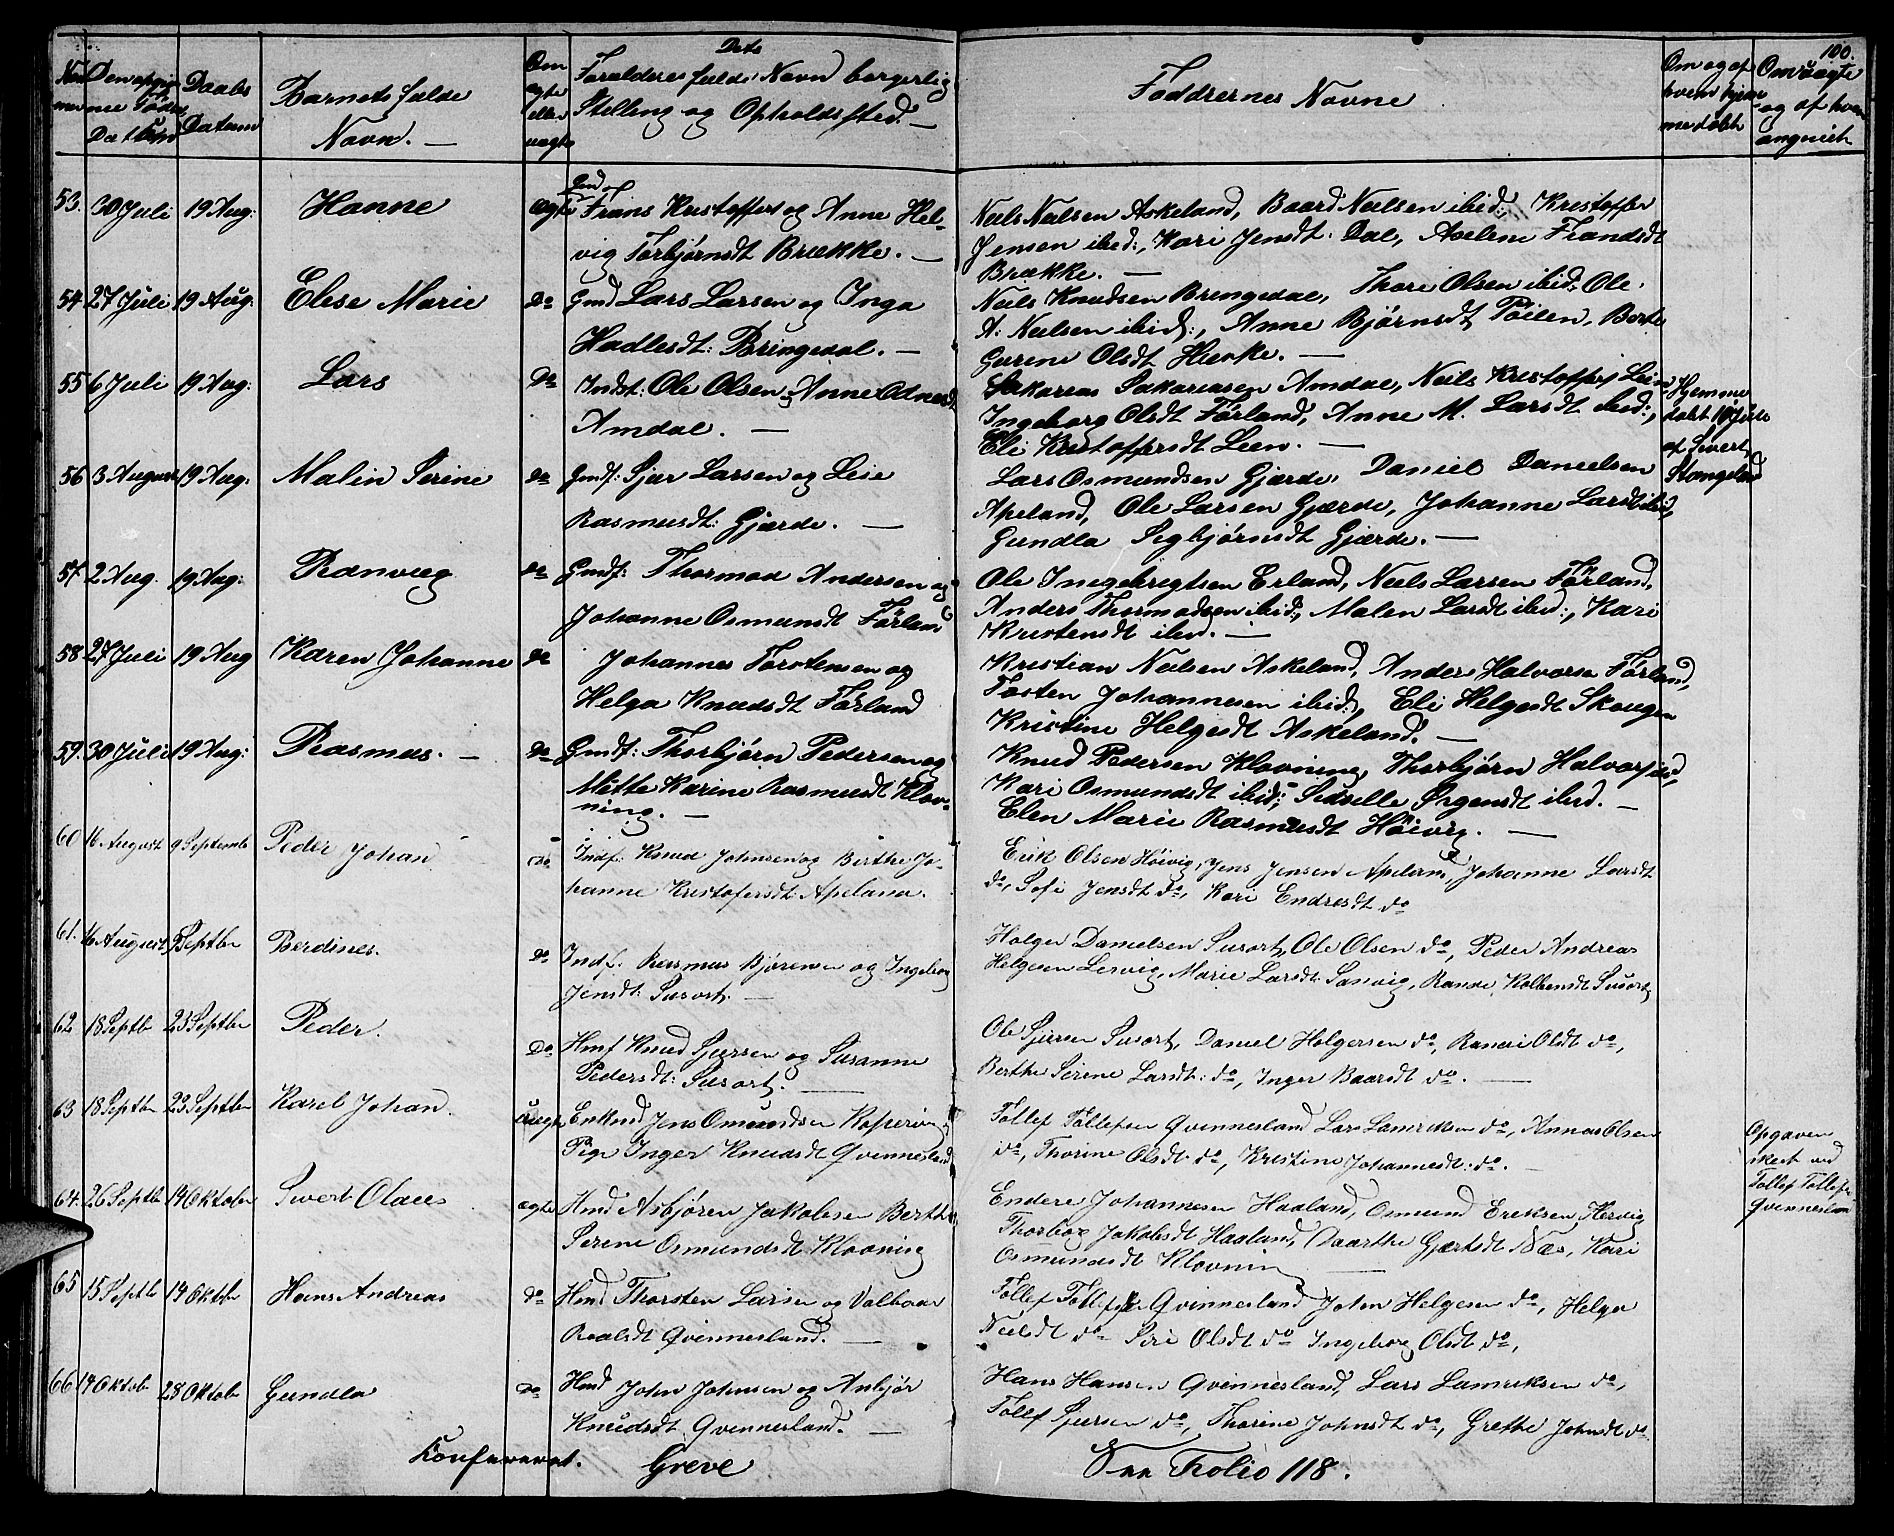 100.
Daabs
Datum
Barnets fulde
Navn. —
Om
ægte
eller
uægte
Forældres fulde Navn borgerlig
Stilling og Opholdssted. —
Faddrernes Navne
Om og af
hvem hjem
me døbt
53. 30 Juli 19 Aug: Hanne ægte
Frans Kristoffers og Anne Hel-
vig Torbjørnsdt Brække. —
Niels Nielsen Askeland, Baard Nielsen ibid:, Kristoffer
Jensen ibid:, Kari Jensdt: Dal, Axeline Frandsdt
Brække. —
54. 27 Juli 19 Aug: Elise Marie do Gmd Lars Larsen og Inga
Hadlesdt: Bringedal. —
Niels Knudsen Bringedal, Thore Olsen ibid:, Ole
A: Nielsen ibid:, Anne Bjørnsdt Pøilen, Berte
Gurine Olsdt Hienke. —
55 6 Juli 19 Aug: Lars do Indst: Ole Olsen og Anne Odnesdt
Amdal. —
Sakarias Sakariasen Amdal, Niels Kristoffers Lien
Ingeborg Olsdt Førland, Anne M. Larsdt ibid:,
Eli Kristoffersdt Lien. —
Hjemme
døbt 10 Juli
af Sivert
Stangeland
56 3 August 19 Aug: Malin Serine do Gmdf: Sjur Larsen og Lise
Rasmusdt: Gjærde. —
Lars Osmundsen Gjærde, Daniel Danielsen
Apeland, Ole Larsen Gjærde, Johanne Larsdt ibid,
Gundla Segbjørnsdt Gjærde. —
57 2 Aug. 19 Aug: Ranveig do Gmdf: Thormod Andersen og
Johanne Osmundsdt Førland
Ole Ingebrigtsen Erland, Niels Larsen Førland,
Anders Thormodsen ibid:, Malen Larsdt ibid:, Kari
Kristensdt ibid. —
58 27 Juli 19 Aug Karen Johanne do Johannes Torstensen og
Helga Knudsdt Førland
Kristian Nielsen Askeland, Anders Halvorsen Førland,
Tosten Johannesen ibid:, Eli Helgesdt Skougen
Kristine Helgesdt Askeland. —
59. 30 Juli 19 Aug: Rasmus. — do Gmdf: Thorbjørn Pedersen og
Mette Karine Rasmusdt Klov-
ning. —
Knud Pedersen Klovning, Thorbjørn Halvorsen ibid,
Kari Osmundsdt ibid: Sidselle Ørgensdt ibid. —
Elen Marie Rasmusdt Høivig. —
60 16 August 9 Septemb Peder Johan do Indf: Knud Johnsen og Birthe Jo-
hanne Kristofersdt: Apeland.
Erik Olsen Høivig, Jens Jensen Apeland, Johanne Larsdt
do, Sofi Jensdt do, Kari Endresdt do
61. 16 August 9 Septbr Berdines. do Indf: Rasmus Bjørensen og Ingeborg
Jensdt: Susort. —
Holger Danielsen Susort, Ole Olsen do, Peder Andreas
Helgesen Lervig, Marie Larsdt: Sanvig, Rande Kolbensdt Susort
62 18 Septb 23 Septbr Peder. Do Hmf Knud Sjursen og Susanne
Pedersdt: Susort. —
Ole Sjursen Susort, Daniel Holgersen do, Ranvei Olsdt do,
Berthe Serine Larsdt: do, Inger Baardsdt do. —
63 18 Septbr 23 Septbr Karel Johan. Uægte Enkmd Jens Osmundsen Kopervig og
Pige Inger Knudsdt Qvinnesland
Tollef Tollefsen Qvinnesland Lars Lauriksen do, Annas Olsen
do, Thorine Olsdt: do, Kristine Johannesdt: do. —
Opgaven
skeet ved
Tollef Tollefs
Qvinnesland
64. 26 Septb 14 Oktober Sivert Olaus ægte Hmd Asbjøren Jakobsen Berthe
Serine Osmundsdt Klovning
Endere Johannesen Haaland, Osmund Eriksen Høivig
Thorbor Jakobsdt Haaland, Daarthe Gjertsdt Næs, Kari
Osmundsdt Klovning
65 15 Septb 14 Oktbr Hans Andreas do Hmd Thorsten Larsen og Valborr
Roalsdt Qvinnesland. —
Tollef Tollefsen Qvinnesland John Helgesen do, Helga
Nielsdt do Siri Olsdt do Ingeborg Olsdt do,
66 14 Oktob 28 Oktob Gundla do Hmd John Johnsen og Anbjør
Knudsdt Qvinnesland. —
Hans Hansen Qvinnesland, Lars Lauriksen do,
Tollef Sjursen do, Thorine Johnsdt do, Grethe Johnsdt do
Konfereret. Greve
See Folio 118.